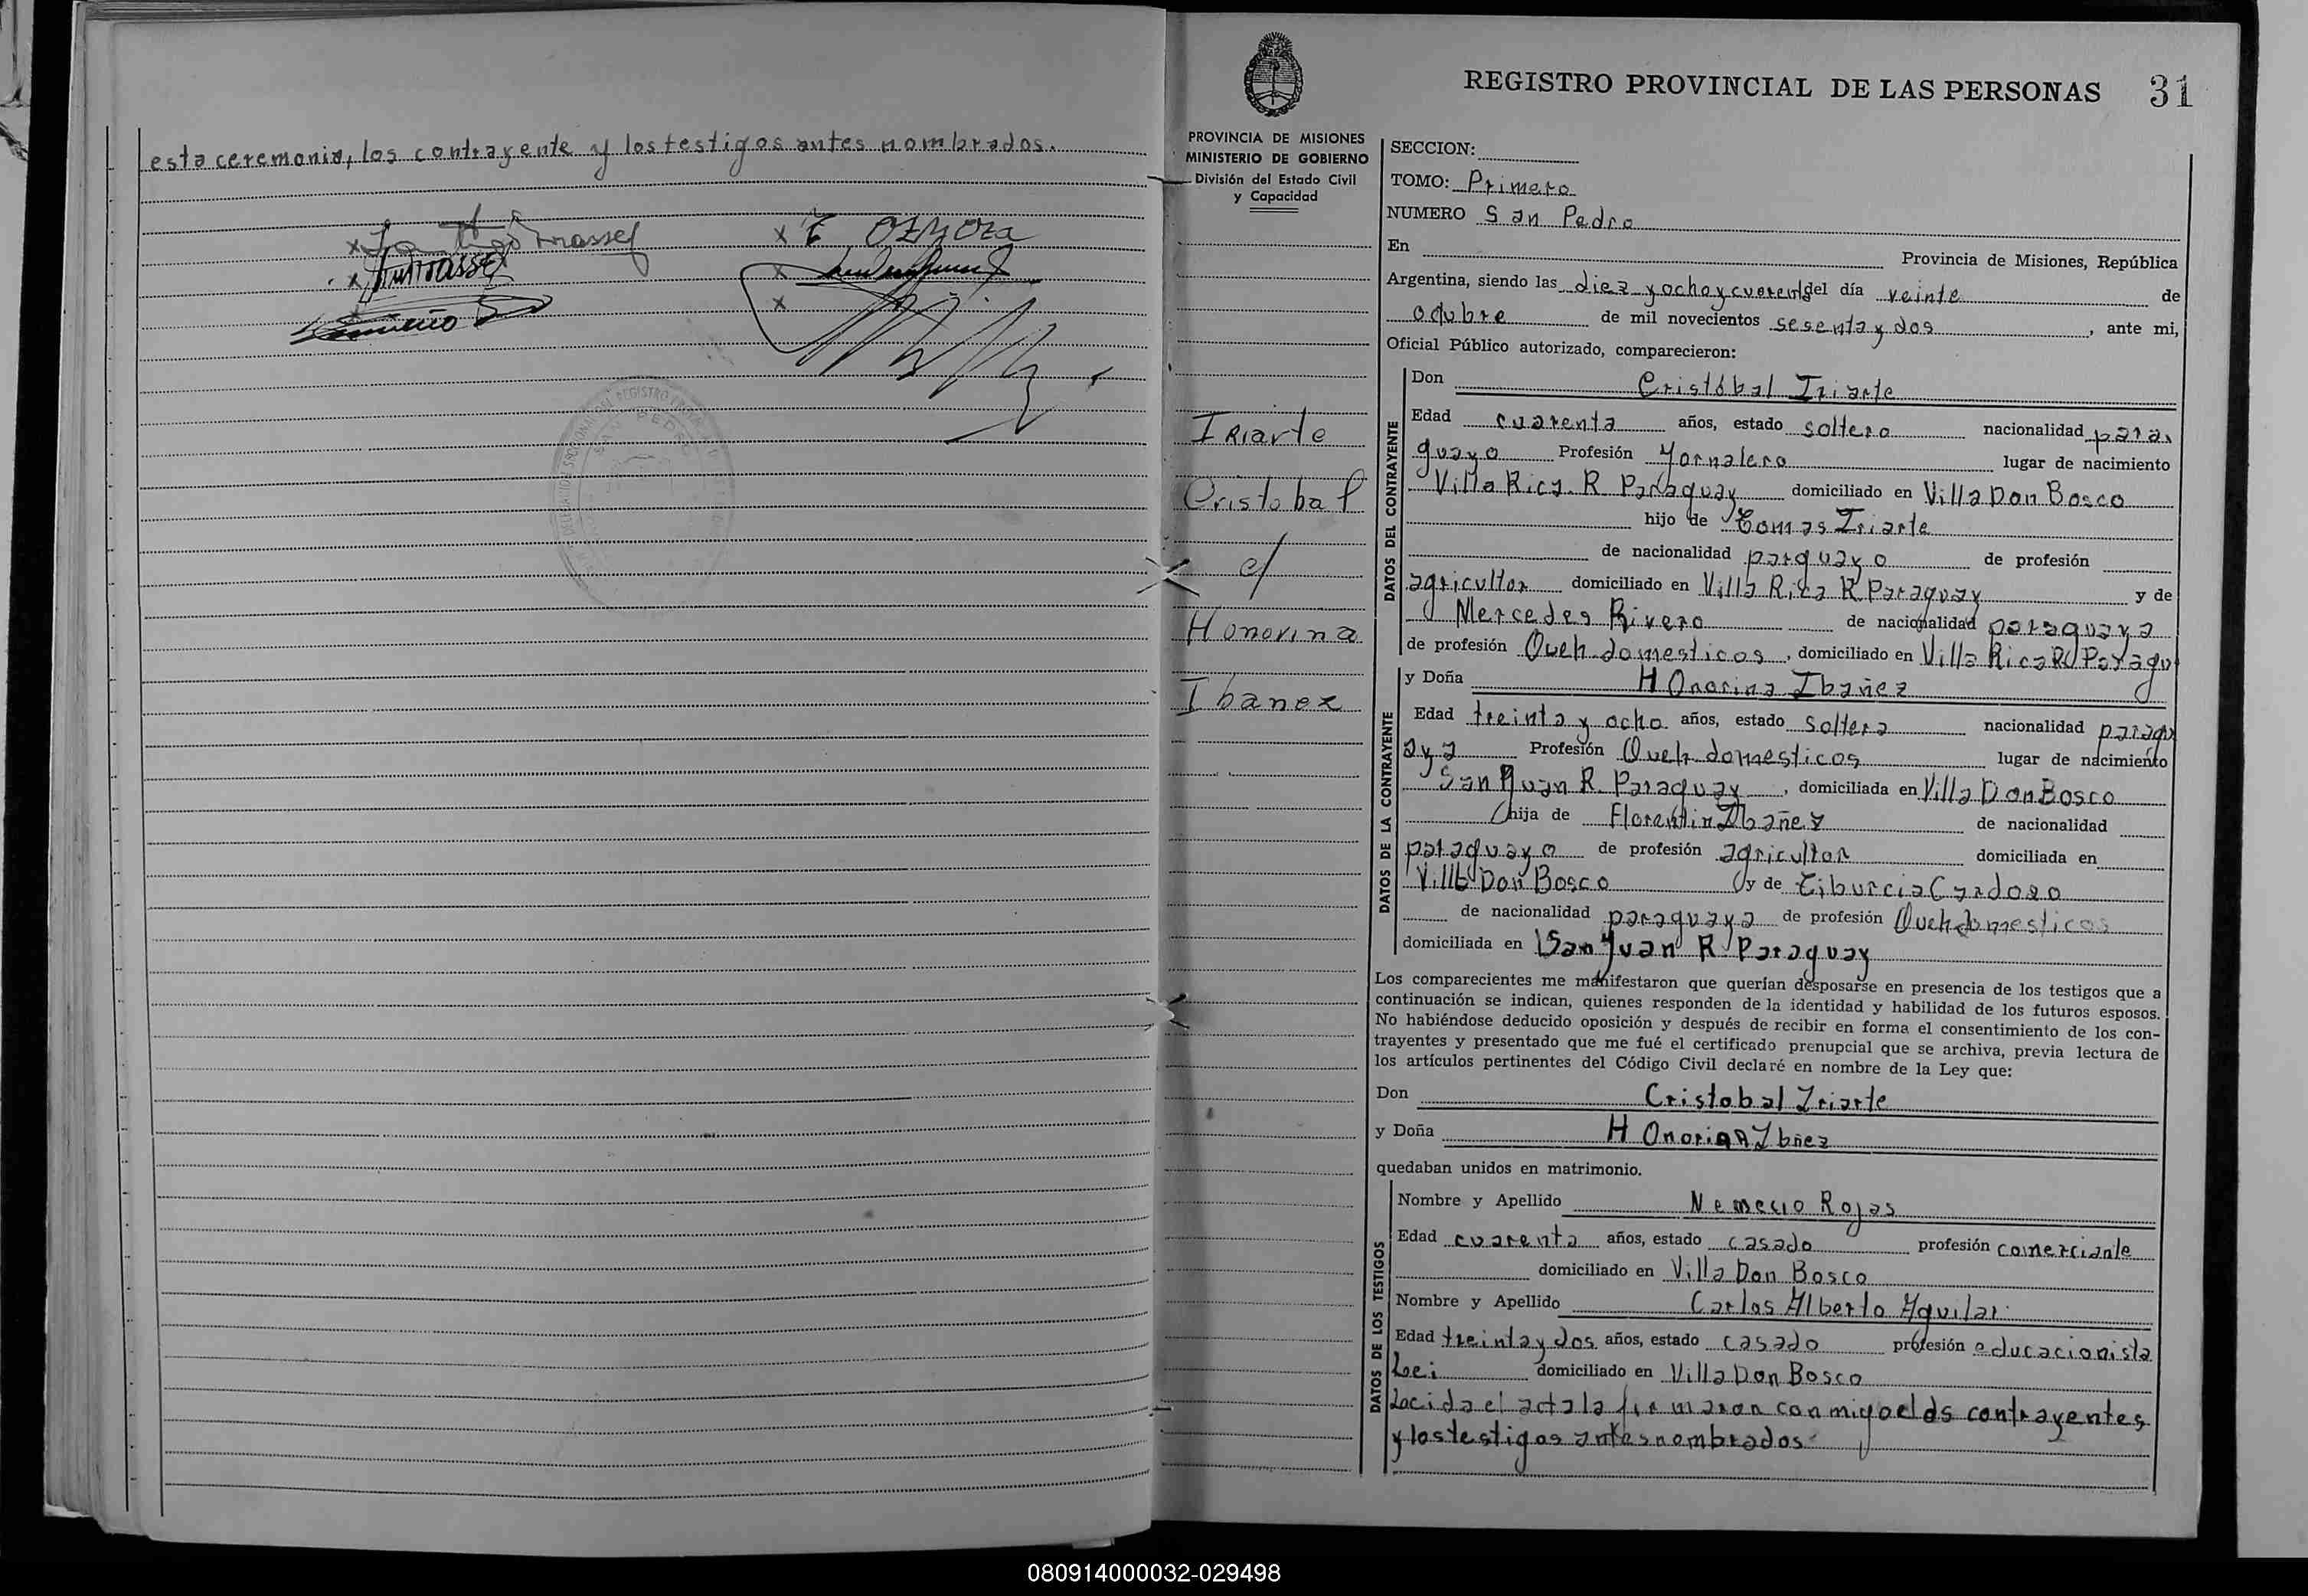 esta ceremonia, los contrayente y los testigos antes nombrados.
REGISTRO PROVINCIAL DE LAS PERSONAS 31
PROVINCIA DE MISIONES
MINISTERIO DE GOBIERNO
División del Estado Civil
y Capacidad
Iriarte
Cristobal
c/
Honorina
Ibanez
SECCION:
TOMO: Primero
NUMERO San Pedro
En Provincia de Misiones, República
Argentina, siendo las diez y ocho y cuarenta del día veinte de
octubre de mil novecientos sesenta y dos, ante mi,
Oficial Público autorizado, comparecieron:
DATOS DEL CONTRAYENTE
Don Cristóbal Iriarte
Edad cuarenta años, estado soltero nacionalidad para
guayo Profesión Yornalero lugar de nacimiento
Villa Rica R. Paraguay domiciliado en Villa Don Bosco
hijo de Tomas Iriarte
de nacionalidad parguayo de profesión
agricultor domiciliado en Villa Rica R Paraguay y de
Mercedes Rivero de nacionalidad paraguaya
de profesión Queh. domesticos, domiciliado en Villa Rica R Paragu
DATOS DE LA CONTRAYENTE
y Doña HOnorina Ibañez
Edad treinta y ocho años, estado soltera nacionalidad paragu
aya Profesión Queh domesticos lugar de nacimiento
San Juan R. Paraguay, domiciliada en Villa Don Bosco
hija de Florentin Ibañez de nacionalidad
paraguayo de profesión agricultor domiciliada en
Villa Don Bosco y de Tiburcia Cardozo
de nacionalidad paraguaya de profesión Queh domesticos
domiciliada en San Juan R Paraguay
Los comparecientes me manifestaron que querían desposarse en presencia de los testigos que a
continuación se indican, quienes responden de la identidad y habilidad de los futuros esposos.
No habiéndose deducido oposición y después de recibir en forma el consentimiento de los con-
trayentes y presentado que me fué el certificado prenupcial que se archiva, previa lectura de
los artículos pertinentes del Código Civil declaré en nombre de la Ley que:
Don Cristobal Iriarte
y Doña HOnorina Ibñez
quedaban unidos en matrimonio.
DATOS DE LOS TESTIGOS
Nombre y Apellido Nemecio Rojas
Edad cuarenta años, estado casado profesión comerciante
domiciliado en Villa Don Bosco
Nombre y Apellido Carlos Alberto Aguilar
Edad treinta y dos años, estado casado profesión educacionista
Lei domiciliado en Villa Don Bosco
el acta la firmaron conmigo contrayentes
y los testigos antes nombrados
080914000032-029498